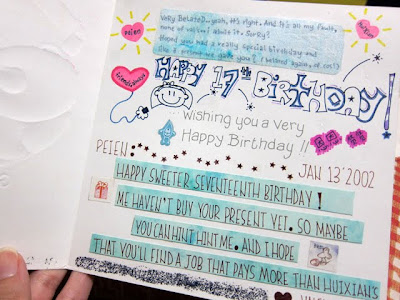 Very Belated... yeah, it's right. And it's all my fault,
none of
about it. Sorry?
Hoped you had a really special birthday and
peien
like a
you
again, at ps!?
friends always
HAPPY 17TH BIRTHDAY!
... wishing you a very
Happy Birthday!!
PEIEN:
JAN 13'2002
HAPPY SWEETER SEVENTEENTH BIRTHDAY!
ME HAVEN'T BUY YOUR PRESENT YET. SO MAYBE
YOU CAN HINT HINT ME. AND I HOPE
THAT YOU'LL FIND A JOB THAT PAYS MORE THAN HUIXIAN'S